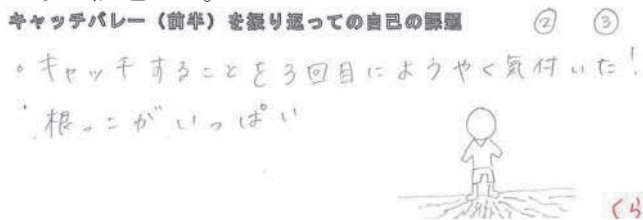 キャッチバレー（前半）を振り返っての自己の課題 ② ③
・キャッチすることを3回目にようやく気付いた！
・根っこがいっぱい
くら